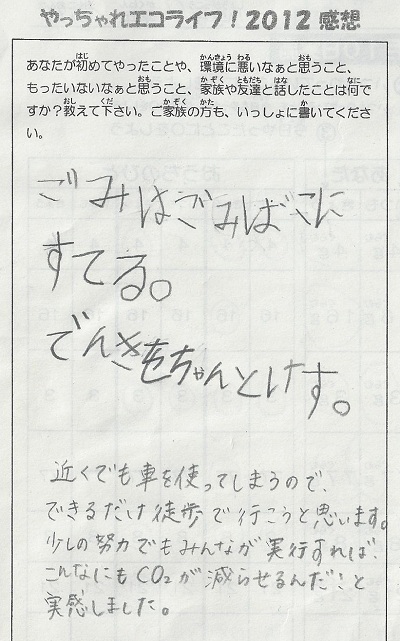 やっちゃれエコライフ！2012 感想
あなたが初めてやったことや、環境に悪いなぁと思うこと、
もったいないなぁと思うこと、家族や友達と話したことは何で
すか？教えて下さい。ご家族の方も、いっしょに書いてくださ
い。
ごみはごみばこに
すてる。
でんきをちゃんとけす。
近くでも車を使ってしまうので、
できるだけ徒歩で行こうと思います。
少しの努力でもみんなが実行すれば、
こんなにもCO2が減らせるんだ！と
実感しました。